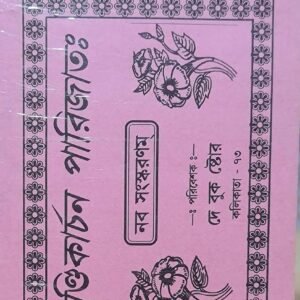 ণ্ডিকার্চন পারিজাতঃ
নব সংস্করণম্
—ঃ পরিবেশক ঃ—
দে বুক স্টোর
কলিকাতা - ৭৩